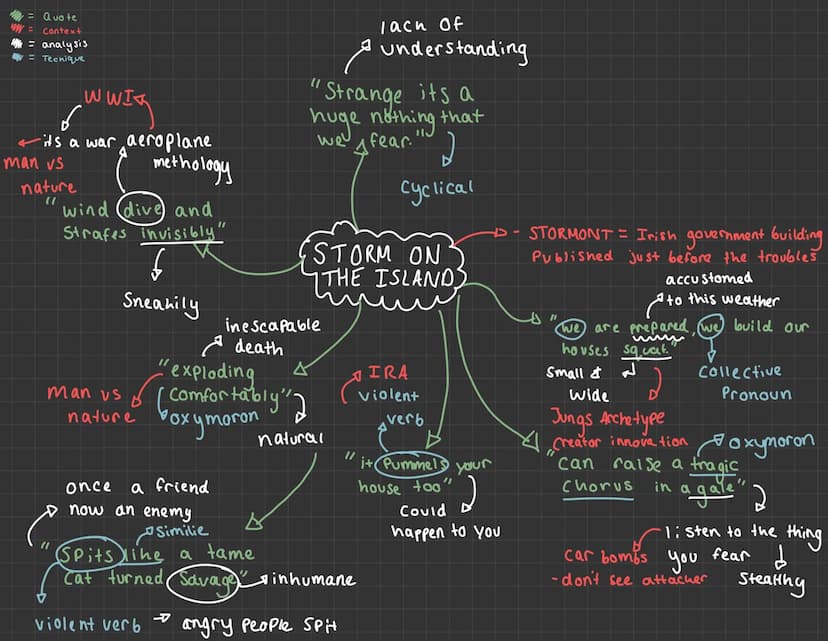 = Quote
= Context
= analysis
= Tecnique
lack of
understanding
"Strange its a
huge nothing that
we fear."
Cyclical
WWI
its a war aeroplane
methology
man vs
nature
"wind dive and
Strafes invisibly"
Sneakily
STORM ON
THE ISLAND
- STORMONT = Irish government building
Published just before the troubles
accustomed
to this weather
"we are prepared, we build our
houses squat."
small &
wide
Collective
Pronoun
Jungs Archetype
Creator innovation
inescapable
death
"exploding
comfortably"
oxymoron
man vs
nature
natural
IRA
violent
verb
"it pummels your
house too"
could
happen to you
oxymoron
"can raise a tragic
chorus in a gale"
listen to the thing
you fear
Stealthy
car bombs
- don't see attacker
once a friend
now an enemy
Similie
"Spits like a tame
cat turned Savage"
inhumane
violent verb → angry people spit